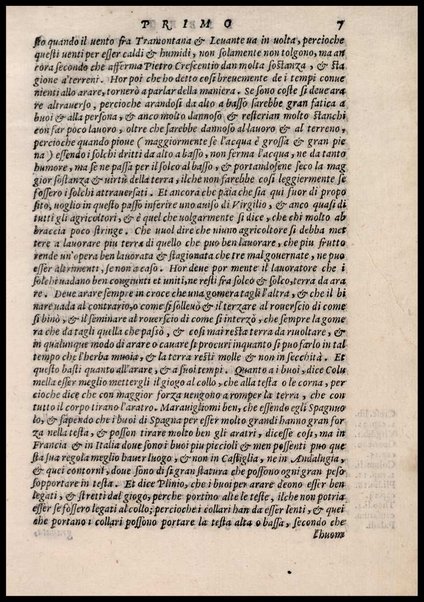 PRIMO 7
sto quando il uento fra Tramontana & Leuante ua in uolta, percioche
questi uenti per esser caldi & humidi, non solamente non tolgono, ma an
cora secondo che afferma Pietro Crescentio dan molta sostanza, & sta
gione a'terreni. Hor poi che ho detto cosi breuemente de i tempi conue
nienti allo arare, tornerò a parlar della maniera. Se sono coste si deue ara
re altrauerso, percioche arandosi da alto a basso sarebbe gran fatica a
buoi & alla persona, & anco molto dannoso & resterian molto stanchi
con far poco lauoro, oltre che sarebbe dannoso al lauoro & al terreno,
percioche quando pioue (maggiormente se l'acqua è grossa & gran pie
na) essendo i solchi dritti da alto a basso, non ferma l'acqua, ne da tanto
humore, ma se ne passa per il solco al basso, & portamlosene seco la mag
gior sostanza & uirtù, ilche non sarebbe cosi leggiermente se
fossero i solchi attrauersati. Et ancora che paia che sia qui fuor di propo
sito, uoglio in questo passo inferire uno auiso di Virgilio, & anco quasi di
tutti gli agricoltori, & è quel che uolgarmente si dice, che chi molto ab
braccia poco stringe. Che vuol dire che niuno agricoltore si debba met
tere a lauorare piu terra di quello che puo ben lauorare, che piu frutto
rende un'opera ben lauorata & stagionata che tre mal gouernate, ne puo
esser altrimenti, se non a caso. Hor deue por mente il lauoratore che i
solchi uadano ben congiunti et uniti, ne resti fra solco & solco, terra da ara
re. Deue arare sempre in croce che una gomera tagli l'altra, & che il bi
nare uada al contrario, o come si solleuò & il terzar al rouescio di come
si binò, & il seminare al rouescio di come si interzò, che sempre la gome
ra che da tagli quella che passò, & così mai resta terra da riuoltare, &
in qualunque modo di arare o cauare si procuri inquanto si puo farlo in tal
tempo che l'herba muoia, & la terra resti molle & non in secchità. Et
questo basti quanto all'arare, & a suoi tempi. Quanto a i buoi, dice Colu
mella esser meglio mettergli il giogo al collo, che alla testa o le corna, per
cioche dice che con maggior forza uengono a romper la terra, che con
tutto il corpo tirano l'aratro. Marauigliomi ben, che essendo egli Spagnuo
lo, & sapendo che i buoi di Spagna per esser molto grandi hanno gran for
za nella testa, & posson tirare molto ben gli aratri, dicesse cosi, ma in
Francia & in Italia doue sono i buoi piu piccioli & men possenti puo que
sta sua regola meglio hauer luogo, & non in Castiglia, ne in Andalugia,
& quei contorni, doue sono di si gran statura che possono ogni gran peso
sopportare in testa. Et dice Plinio, che i buoi per arare deono esser ben
legati, & stretti dal giogo, perche portino alte le teste, ilche non potria
esser se fossero legati al collo; percioche i collari han da esser lenti, & quei
che portano i collari possono portare la testa alta o bassa, secondo che
l'huom